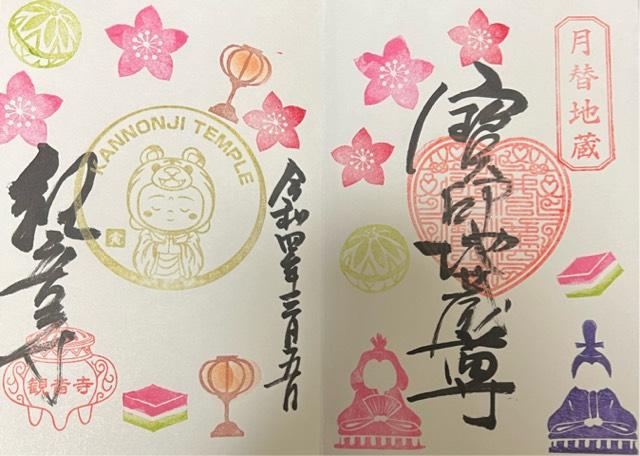 月替地蔵
寳印地蔵尊
令和四年三月五日
KANNONJI TEMPLE
寅
観音寺
観音寺